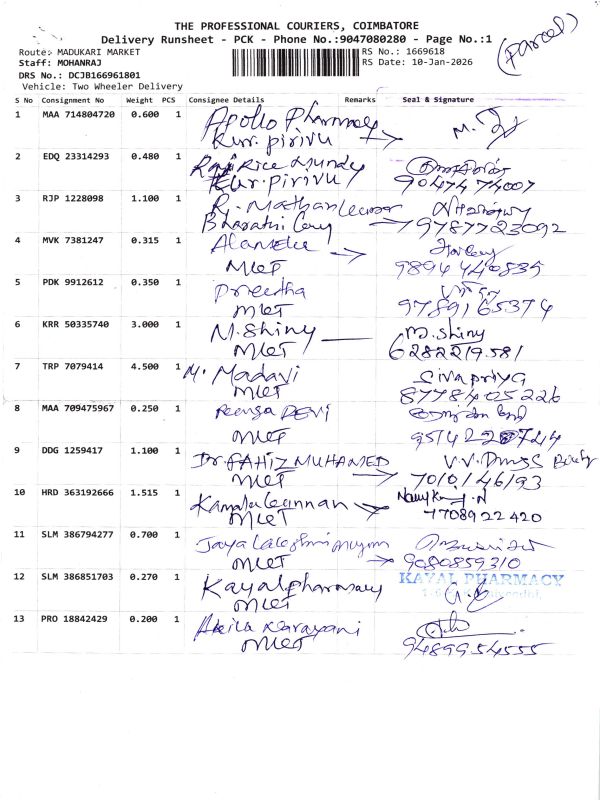 THE PROFESSIONAL COURIERS, COIMBATORE
Delivery Runsheet - PCK - Phone No.:9047080280 - Page No.:1
(Parcel)
Route: MADUKARI MARKET
RS No.: 1669618
Staff: MOHANRAJ
RS Date: 10-Jan-2026
DRS No.: DCJB166961801
Vehicle: Two Wheeler Delivery
S No Consignment No Weight PCS Consignee Details Remarks Seal & Signature
1 MAA 714804720 0.600 1 Apollo Pharmacy
Kur. pirivu
2 EDQ 23314293 0.480 1 Raji Rice Mundy
Kur. Pirivu 9047474007
3 RJP 1228098 1.100 1 R. Mathan
Bharathi 9787723092
4 MVK 7381247 0.315 1
MKT 9894440835
5 PDK 9912612 0.350 1 Preetha
MKT 9789165374
6 KRR 50335740 3.000 1 M. Shiny M. Shiny
MKT 6282219581
7 TRP 7079414 4.500 1 M. Madavi Sivapriya
MKT 8778405226
8 MAA 709475967 0.250 1 DEVI
MKT
9 DDG 1259417 1.100 1 Dr. FAHIZ MUHAMED V.V. Drugs
MKT 7010146193
10 HRD 363192666 1.515 1 Kamalakannan
MKT 7708922420
11 SLM 386794277 0.700 1
MKT 9080859310
12 SLM 386851703 0.270 1 Kayal pharmacy KAYAL PHARMACY
MKT
13 PRO 18842429 0.200 1 Akila Narayani
MKT 9489954555